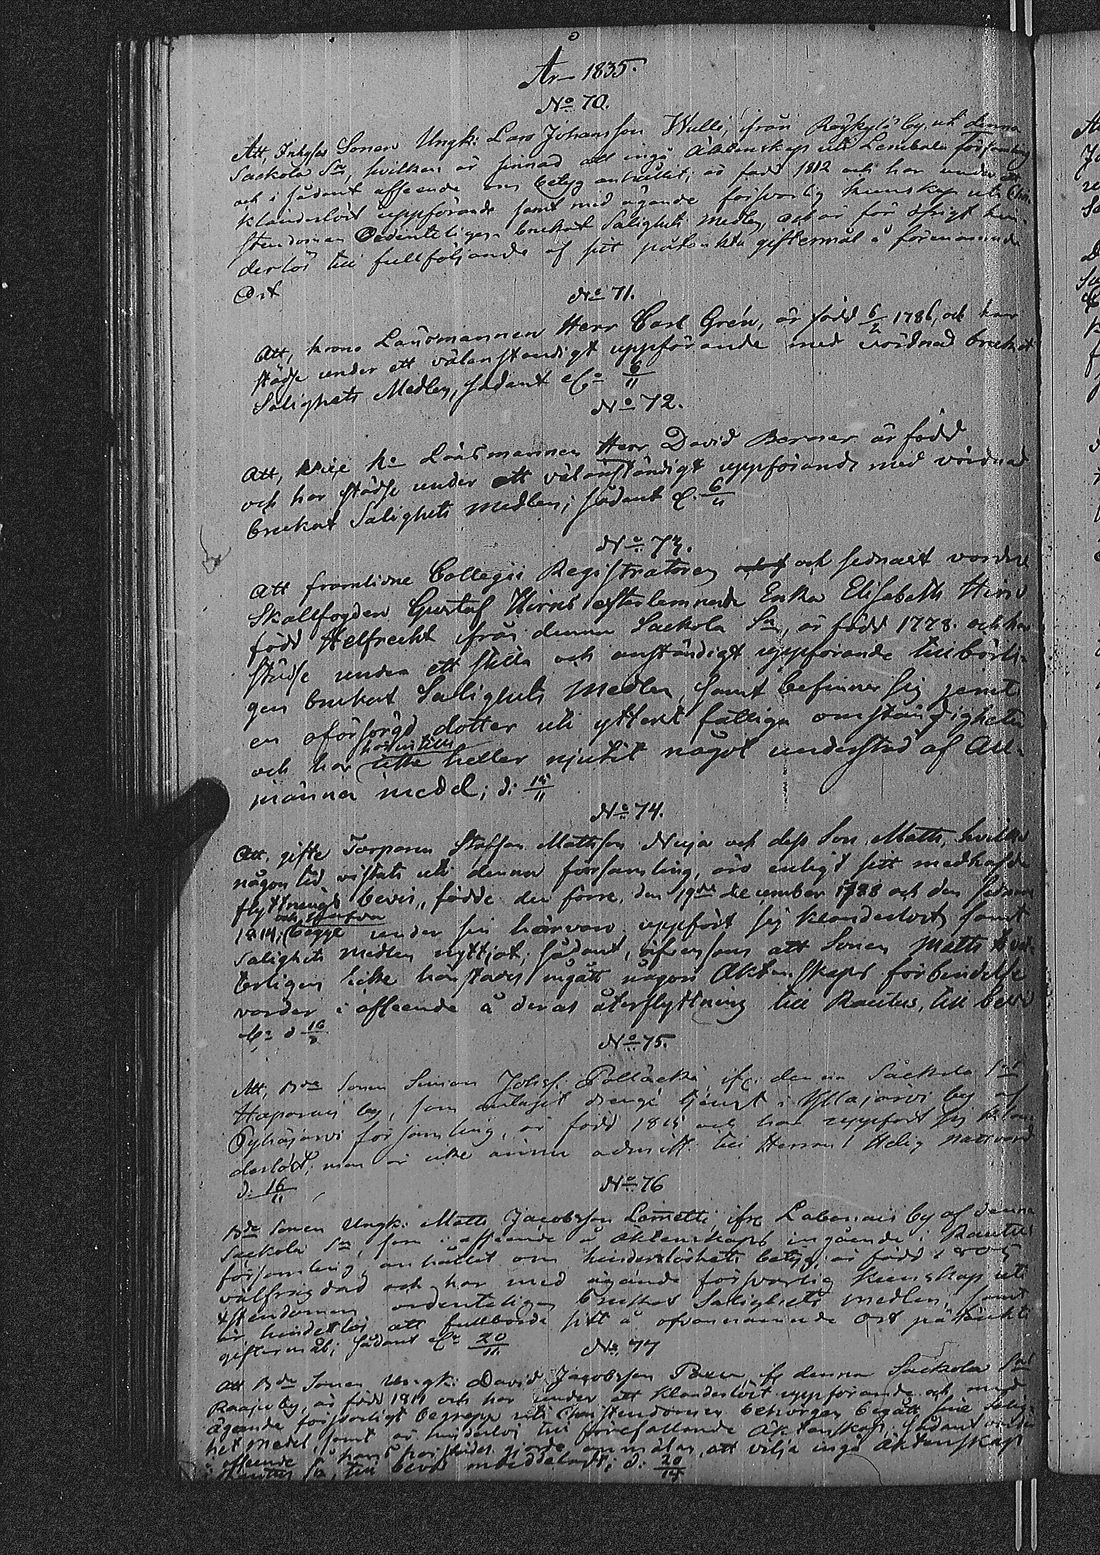 År 1835.
No 70.
Att, Inhyses Sonen Ungk: Lars Johansson Wulli, från Röykylä by, uti denna
Sackola Sn, hvilken är sinnad att ingå Äktenskap uti Lembala församling
och i sådant afseende om betyg anhållit, är född 1812 och har under ett
klanderlöst uppförande samt med ägande försvarlig kunskap uti Chri-
stendomen Ordenteligen brukat Salighets Medlen, och är för öfrigt hin-
derlös till fullföljande af sitt påtänkta giftermål å förenämnde
Ort
No 71.
Att, krono Länsmannen Herr Carl Grén, är född 6/2 1786, och har
städse under ett välanständigt uppförande med vördnad brukat
Salighets Medlen, sådant 6/11
No 72.
Att, Vice Kr Länsmannen Herr David Berner är född
och har städse under ett välanständigt uppförande med vördnad
brukat Salighets medlen; sådant 6/11
No 73.
Att framlidne Collegii Registratoren och sednast vordne
Skallfogden Gustaf Hirns efterlemnade Enka Elisabeth Hirn
född Helfrecht från denna Sackola Sn, är född 1778. och har
städse under ett stilla och anständigt uppförande tillbörli-
gen brukat Salighets Medlen, samt befinner sig jemte
en oförsörgd dotter uti ytterst fattiga omständigheter
och har icke heller njutit något understöd af All-
männa medel; d: 15/11
No 74.
Att, gifte Torparen Staffan Mattsson Nuija och dess Son Matts, hvilka
någon tid vistats uti denna församling, äro enligt sitt medhafde
flyttnings bevis, födde den förre, den 19de december 1788 och den sednare
1814; begge under sin härvaro uppfört sig klanderlöst samt
Salighets medlen nyttjat; sådant, äfvensom att Sonen Matts
icke härstädes ingått någon Äktenskaps förbindelse
varder i afseende å deras återflyttning till Rautus, till bevis
d 16/
No 75.
Att, Bde Sonen Simon Johsf: Polläcki, ifr. denna Sackola Sns
Haparais by, som antagit drenge tjenst i Yllajärvi by af
Pyhäjärvi församling, är född 1815 och har uppfört sig klan-
derlöst; men är icke ännu admitt. till Herrans Helig Nattvard
d. 16/11
No 76
Bde Sonen Ungk: Matts Jacobsson Lametti, ifr Labanais by af denna
Sackola Sn, som i afseende å äktenskaps ingående i Rautus
församling anhållit om hinderslöshets betyg, är född 1805
välfrägdad och har med ägande försvarlig kunskap uti
Xstendomen ordenteligen brukat Salighets medlen, samt
är hinderlös att fullborda sitt å ofvannämnde Ort påtänkte
giftermål; sådant 20/11
No 77
Att Bde Sonen Ungk: David Jacobsson Paxu ifr denna Sackola Sns
by, är född 1811 och har under ett klanderlöst uppförande och med
ägande försvarligt begrepp uti Christendomen behörigen begått sine Salig-
het medel, samt är hinderlös till förefallande Äktenskap; sådant varder
afseende härstädes gjorde anmälan, att vilja ingå Äktenskap
till bevis meddeladt; d. 20/